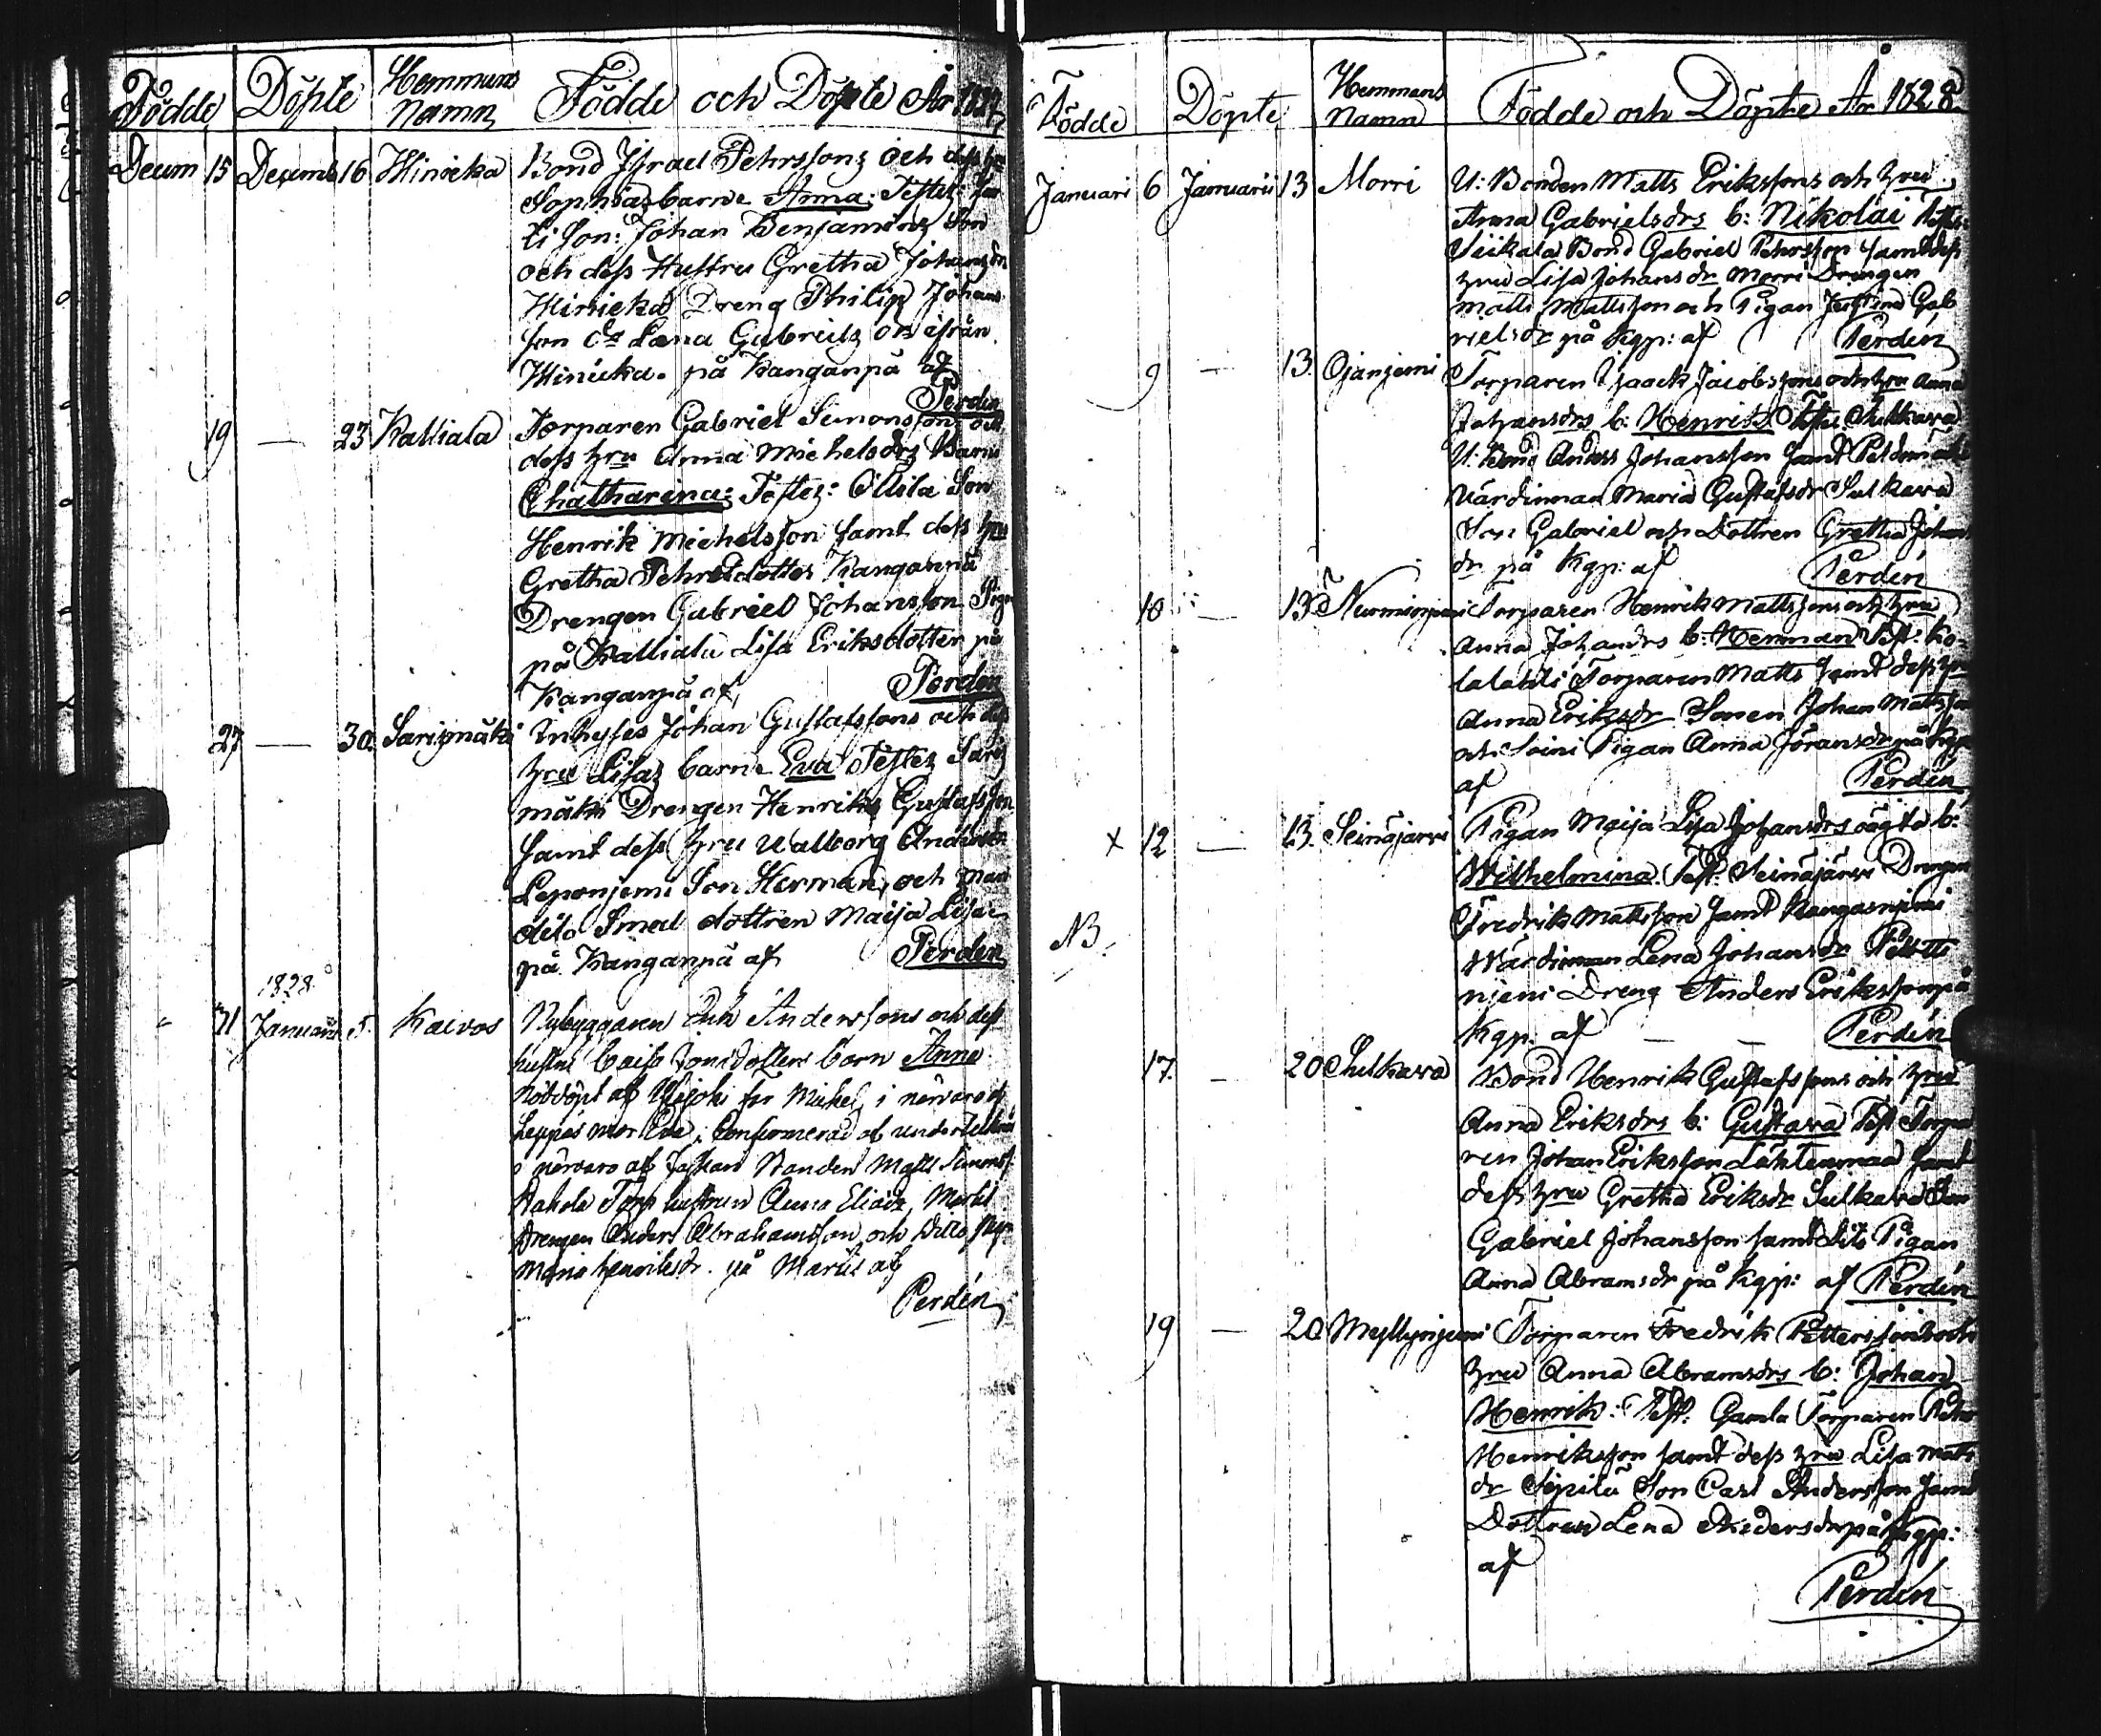 Födde Döpte Hemmans Namn Födde och Döpte År 1827
Decem 15 Decemb 16 Hinicka Bond Jsrael Pehrssons och dess hu
Sophias barn Anna. Testes:
li Son: Johan Benjamins Son
och dess Hustru Gretha Johansdr
Hinicka Dreng Philip Johans
son do Lena Gabriels dr ifrån
Hinicka. på Kanganpä af
Perdén
19 — 23 Kalliala Torparen Gabriel Simonssons och
dess hru Anna Michelsdrs Barn
Chatharina: Testes: Ollila Son
Henrik Michelsson samt dess hru
Gretha Pehrsdotter Kanganpä
Drengen Gabriel Johansson Pigan
på Kalliala Lisa Eriksdotter på
Kanganpä af Perdén
27 — 30 Sarimäki Inhyses Johan Gustafssons och dess
hru Lisas barn Eva Testes Sari
mäki Drengen Henriks Gustafsson
samt dess hru Walborg Andersdr
Leponjemi Son Herman och
dito Smed dottren Maija Lisa
på Kanganpä af Perdén
1828
31 Januarii 5. Kaivos Nybyggaren Erik Anderssons och dess
hustrus Caisa Jonsdotters barn Anna
Nöddöpt af Ylijoki far Mickel i närvaro af
Leppäs mor Eva; Confirmerad af undertecknad
i närvaro af Jaskari Bonden Matts Simonss.
Hakola Torp hustrun Anna Eliaedr, Markil
Drengen Anders Abrahamsson och ditto Pig.
Maria Henriksdr. på Martis af
Perdén
Födde Döpte Hemmans Namn Födde och Döpte År 1828
Januari 6 Januarii 13 Morri U: Bonden Matts Erikssons och hru
Anna Gabrielsdrs b: Nikolai Testes:
Siikala Bond Gabriel Pehrsson samt dess
hru Lisa Johansdr Morri Drengen
Matts Mattsson och Pigan Justina Gab
rielsdr på Kgp: af Perdén
9 — 13. Ojanjemi Torparen Isaack Jacobssons och hru Anna
Johansdrs b: Henrik. Test. Sulkava
U: Bond Anders Johansson samt Peldomäki
Värdinnan Maria Gustafsdr Sulkava
Son Gabriel och Dottren Gretha Johans
dr på Kgp: af Perdén
10 — 13 Nurmionjemi Torparen Henrik Mattssons och hru
Anna Johansdrs b: Herman Test: Ko-
lalahti Torparen Matts samt dess hru
Anna Eriksdr Sonen Johan Mattsson
och Soini Pigan Anna Jöransdr på Kgp
af Perdén
x 12 — 13. Seinäjärvi Pigan Maija Lisa Johansdrs oägta b:
Wilhelmina. Test: Seinäjärvi Drengen
Fredrik Mattsson samt Kangasnjemi
NB. Wärdinnan Lena Johansdr
njemi Dreng Anders Eriksson på
Kgp: af — — Perdén
17. — 20 Sulkava Bond Henrik Gustafssons och hru
Anna Eriksdrs b: Gustava Test Torpa
ren Johan Eriksson Lähtenmaa samt
dess hru Gretha Eriksdr Sulkava Son
Gabriel Johansson samt dito Pigan
Anna Abramsdr på Kgp: af Perdén
19 — 20 Myllynjemi Torparen Fredrik Petterssons och
hru Anna Abramsdrs b: Johan
Henrik: Test: Gamla Torparen Pehr
Henriksson samt dess hru Lisa Matts
dr Sipilä Son Carl Andersson samt
Dottren Lena Andersdr på Kgp:
af
Perdén